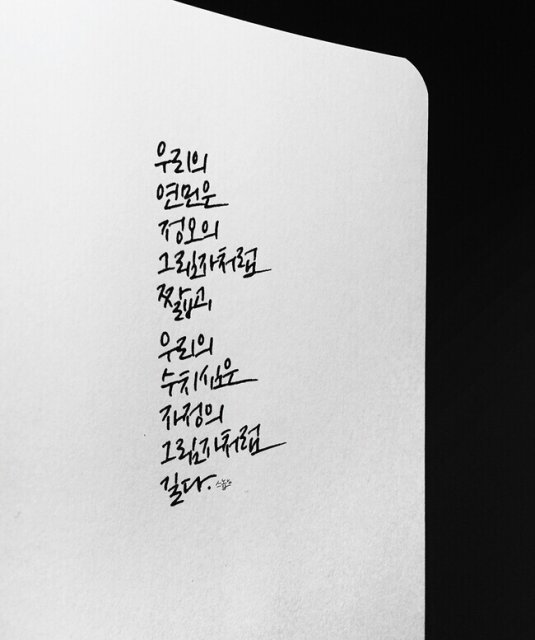 우리의
연민은
정오의
그림자처럼
짧고,
우리의
수치심은
자정의
그림자처럼
길다.